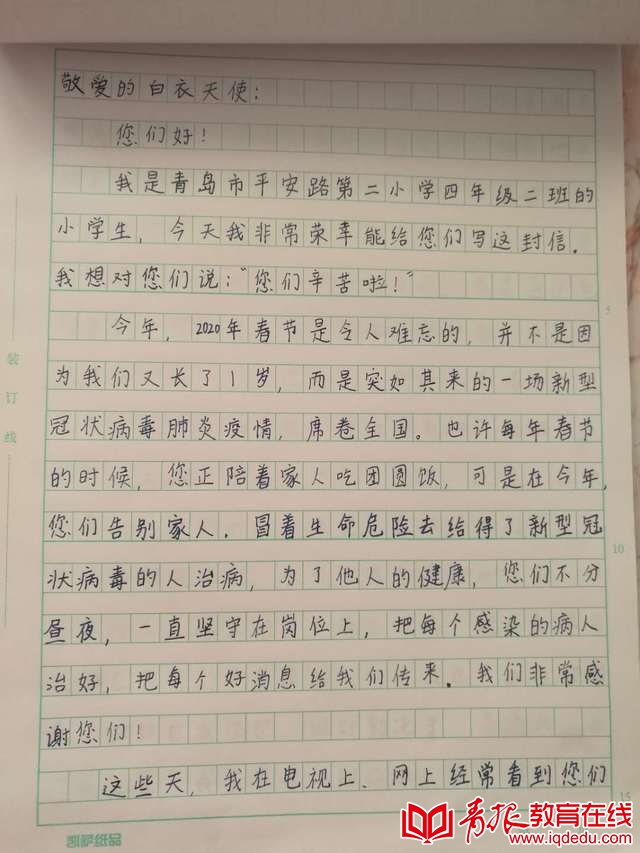 敬爱的白衣天使：
您们好！
我是青岛市平安路第二小学四年级二班的
小学生，今天我非常荣幸能给您们写这封信。
我想对您们说：“您们辛苦啦！”
今年，2020年春节是令人难忘的，并不是因
为我们又长了1岁，而是突如其来的一场新型
冠状病毒肺炎疫情，席卷全国。也许每年春节
的时候，您正陪着家人吃团圆饭，可是在今年，
您们告别家人，冒着生命危险去给得了新型冠
状病毒的人治病，为了他人的健康，您们不分
昼夜，一直坚守在岗位上，把每个感染的病人
治好，把每个好消息给我们传来。我们非常感
谢您们！
这些天，我在电视上、网上经常看到您们
装订线
5
10
15
凯萨纸品
青报教育在线
www.iqdedu.com